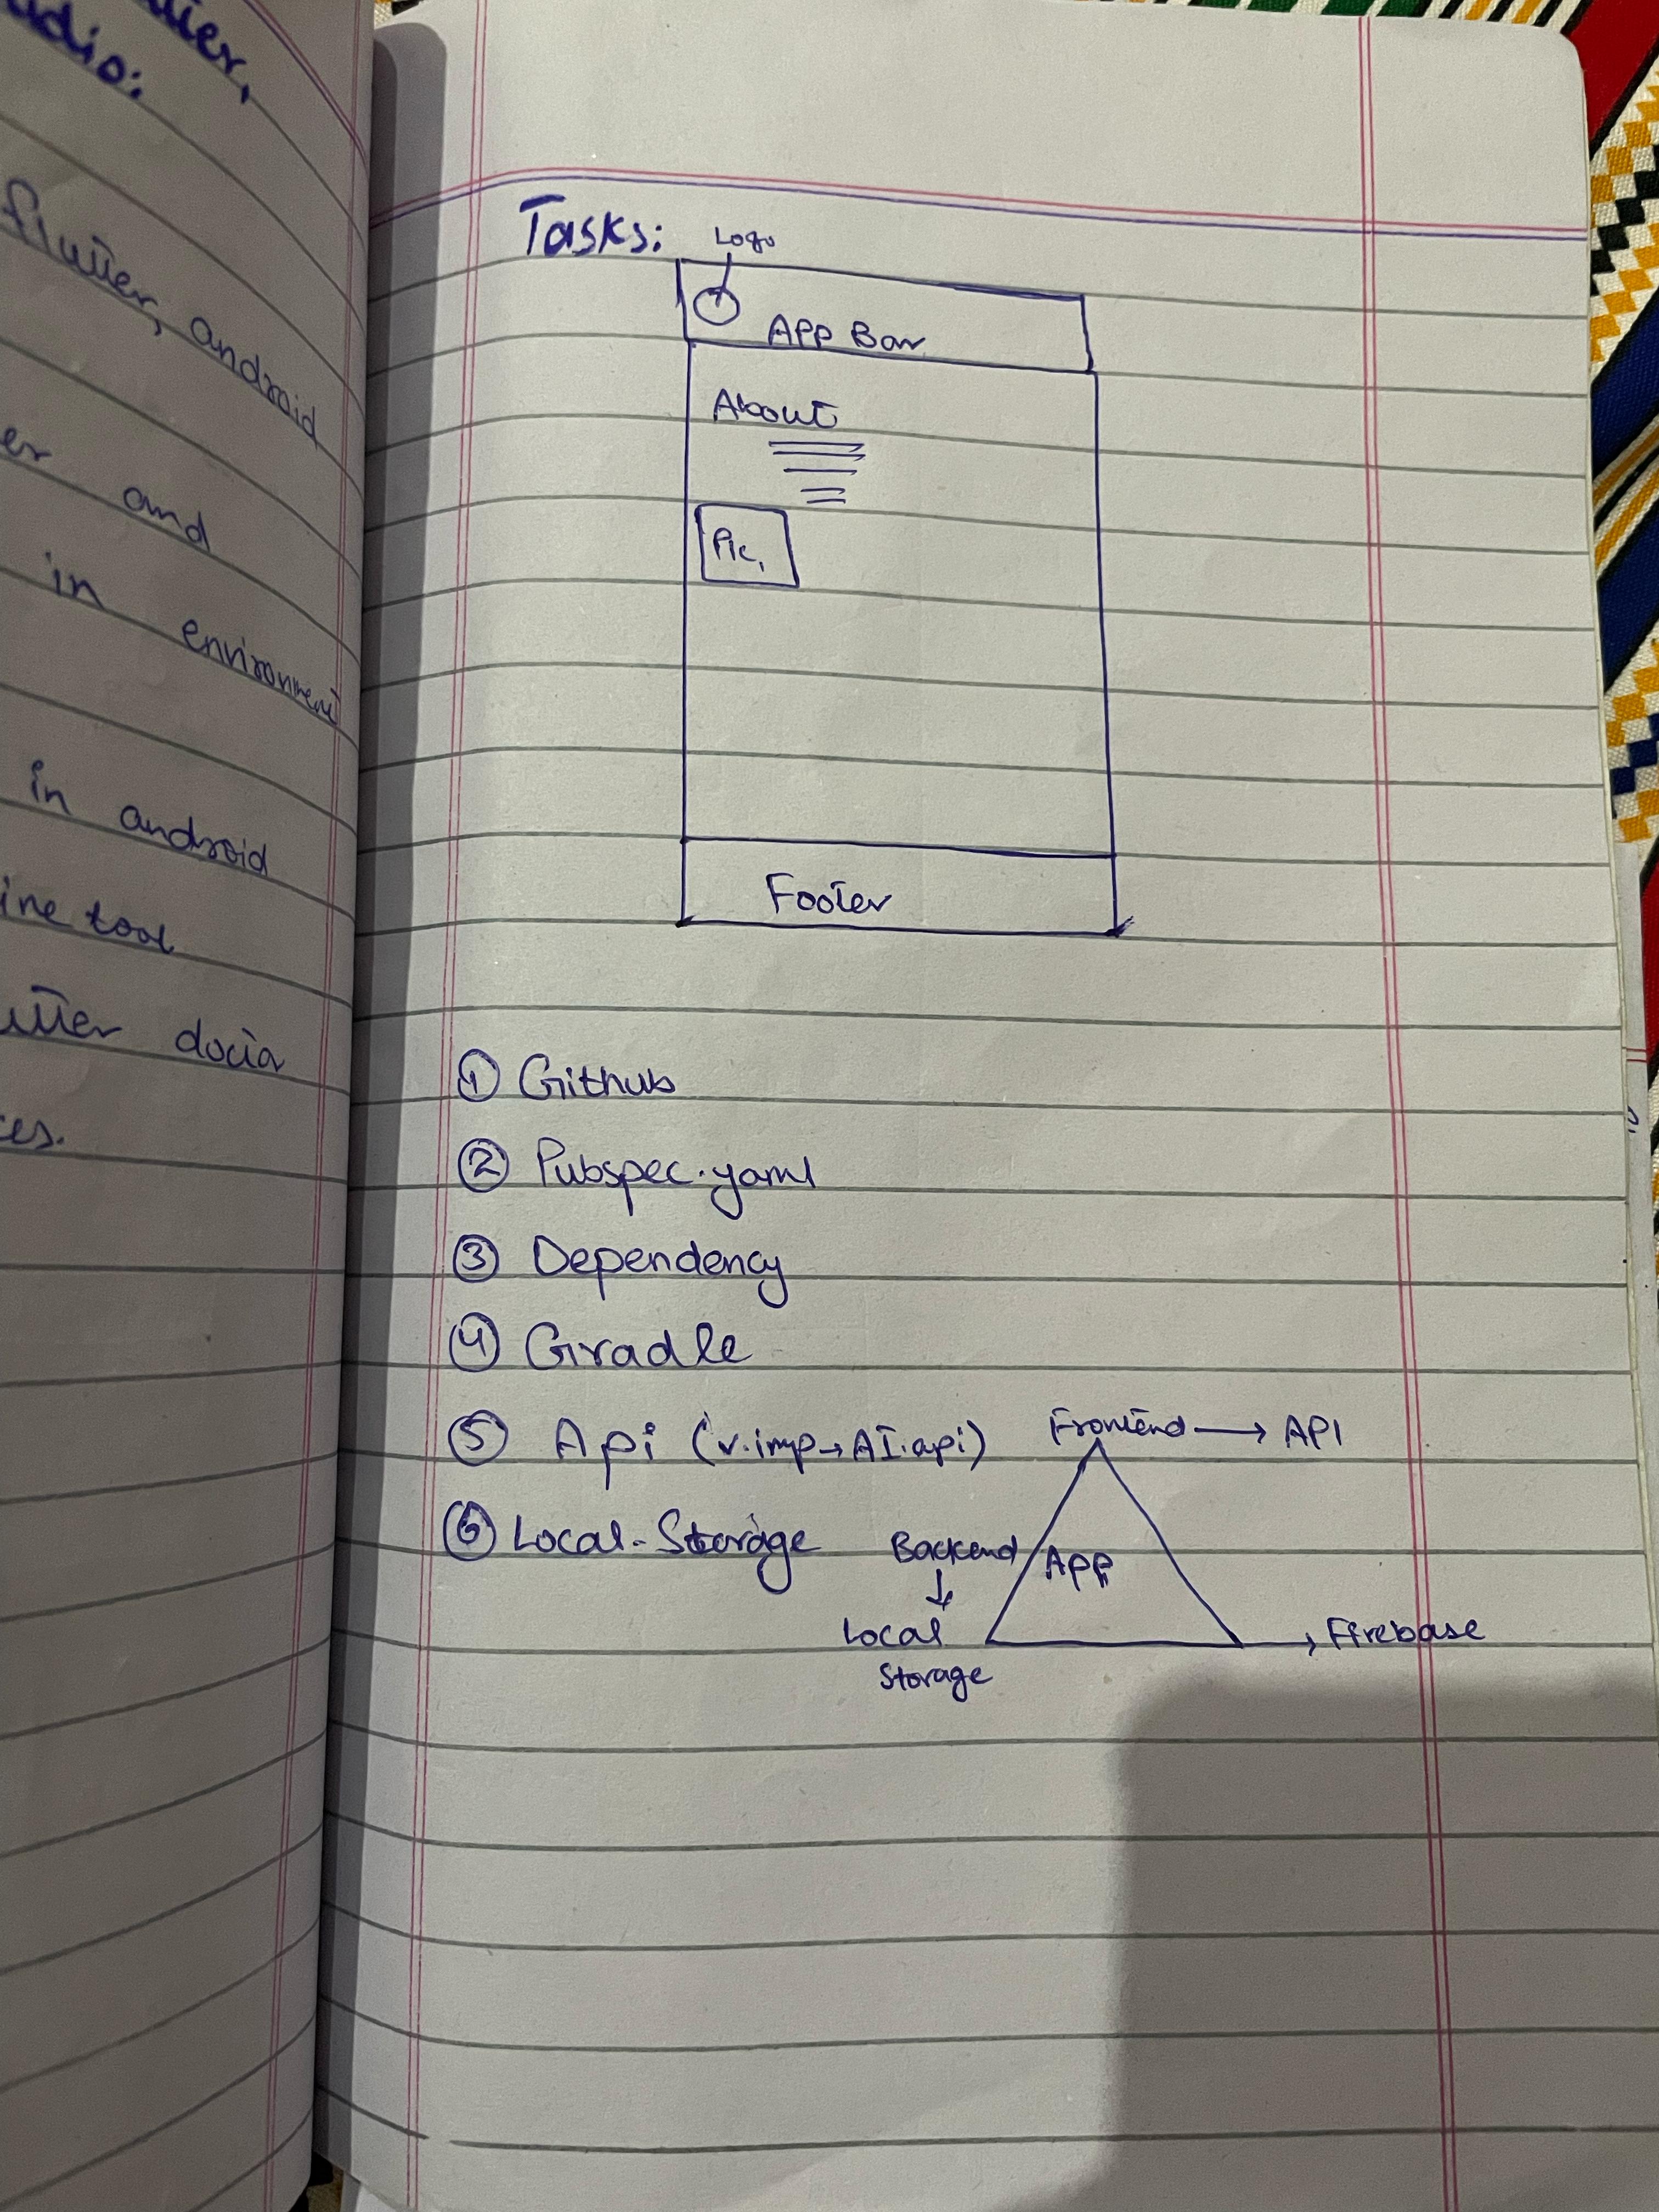 flutter, android
er and
in environment
in android
ine tool
utter docia
Tasks:
Logo
App Bar
About
Pic,
Footer
① Github
② Pubspec.yaml
③ Dependency
④ Gradle
⑤ Api (v.imp→AI.api)
⑥ Local-Storage
Frontend → API
Backend
App
Local
Storage
→ Firebase